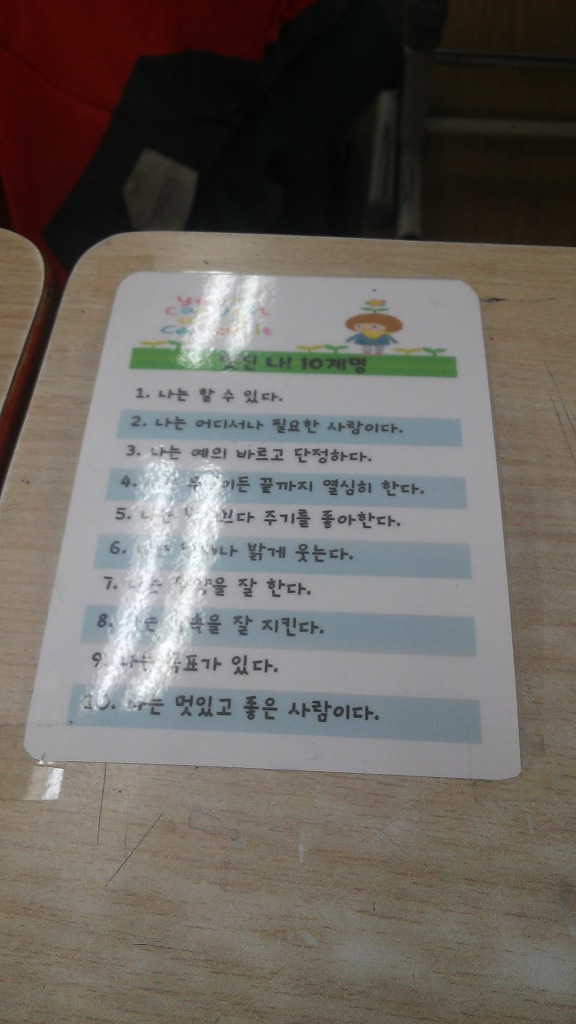 나! 10계명
1. 나는 할 수 있다.
2. 나는 어디서나 필요한 사람이다.
3. 나는 예의 바르고 단정하다.
4. 끝까지 열심히 한다.
5. 나는 주기를 좋아한다.
6. 밝게 웃는다.
7. 나는 잘 한다.
8. 나는 약속을 잘 지킨다.
9. 나는 목표가 있다.
10. 나는 멋있고 좋은 사람이다.